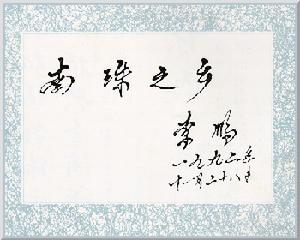 南珠之乡
李鹏
一九九二年
十一月二十八日